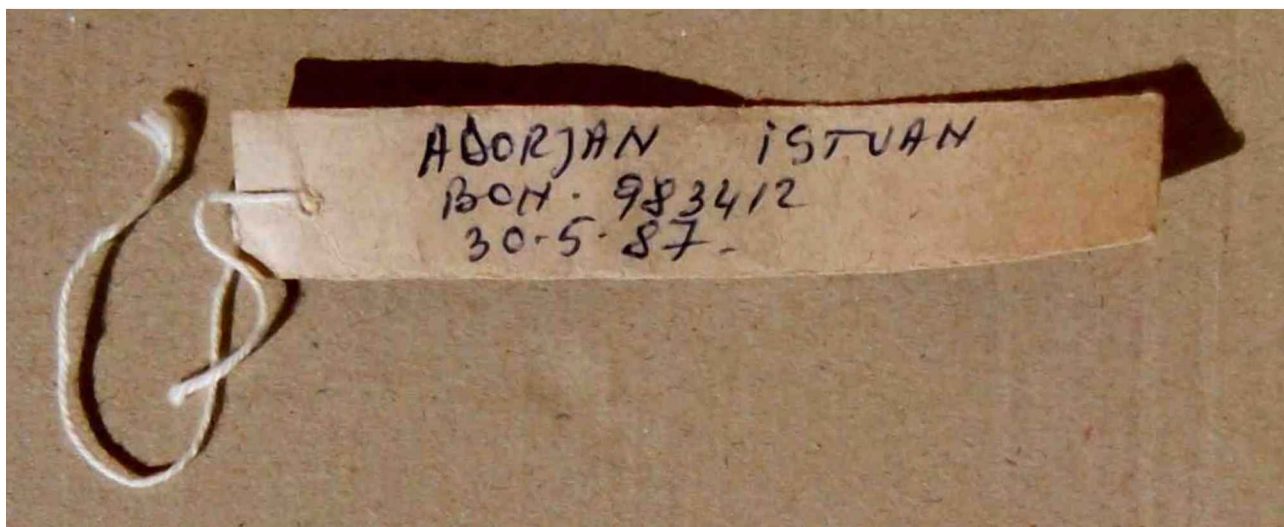 ADORJAN ISTUAN
BON. 983412
30-5-87-